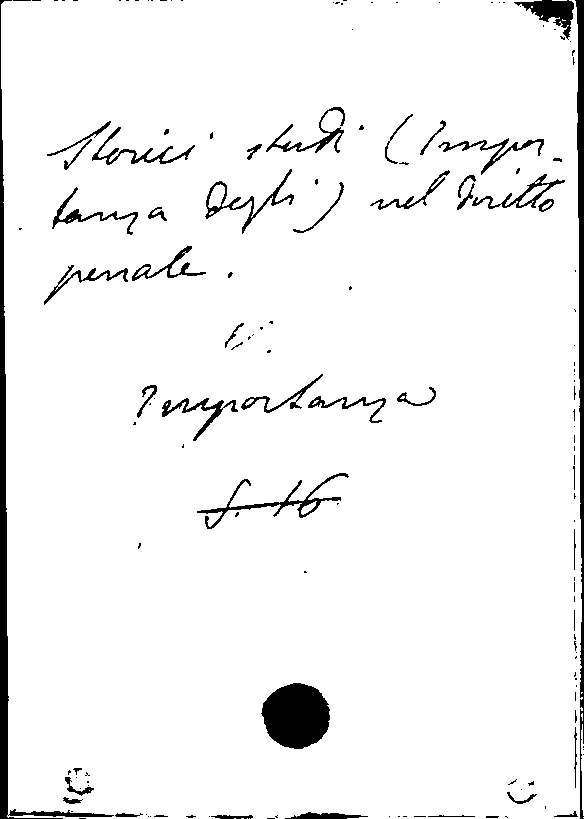 Storici studi (Impor-
tanza degli) nel diritto
penale.
V.
Importanza
S. 16